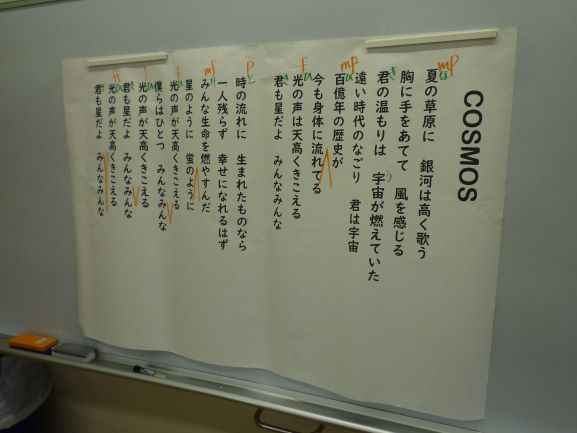 COSMOS
夏の草原に 銀河は高く歌う
胸に手をあてて 風を感じる
君の温もりは 宇宙が燃えていた
遠い時代のなごり 君は宇宙
百億年の歴史が
今も身体に流れてる
光の声は天高くきこえる
君も星だよ みんなみんな
時の流れに 生まれたものなら
一人残らず 幸せになれるはず
みんな生命を燃やすんだ
星のように 蛍のように
光の声が天高くきこえる
僕らはひとつ みんなみんな
光の声が天高くきこえる
君も星だよ みんなみんな
光の声が天高くきこえる
君も星だよ みんなみんな
mp
mp
f
p
mf
f